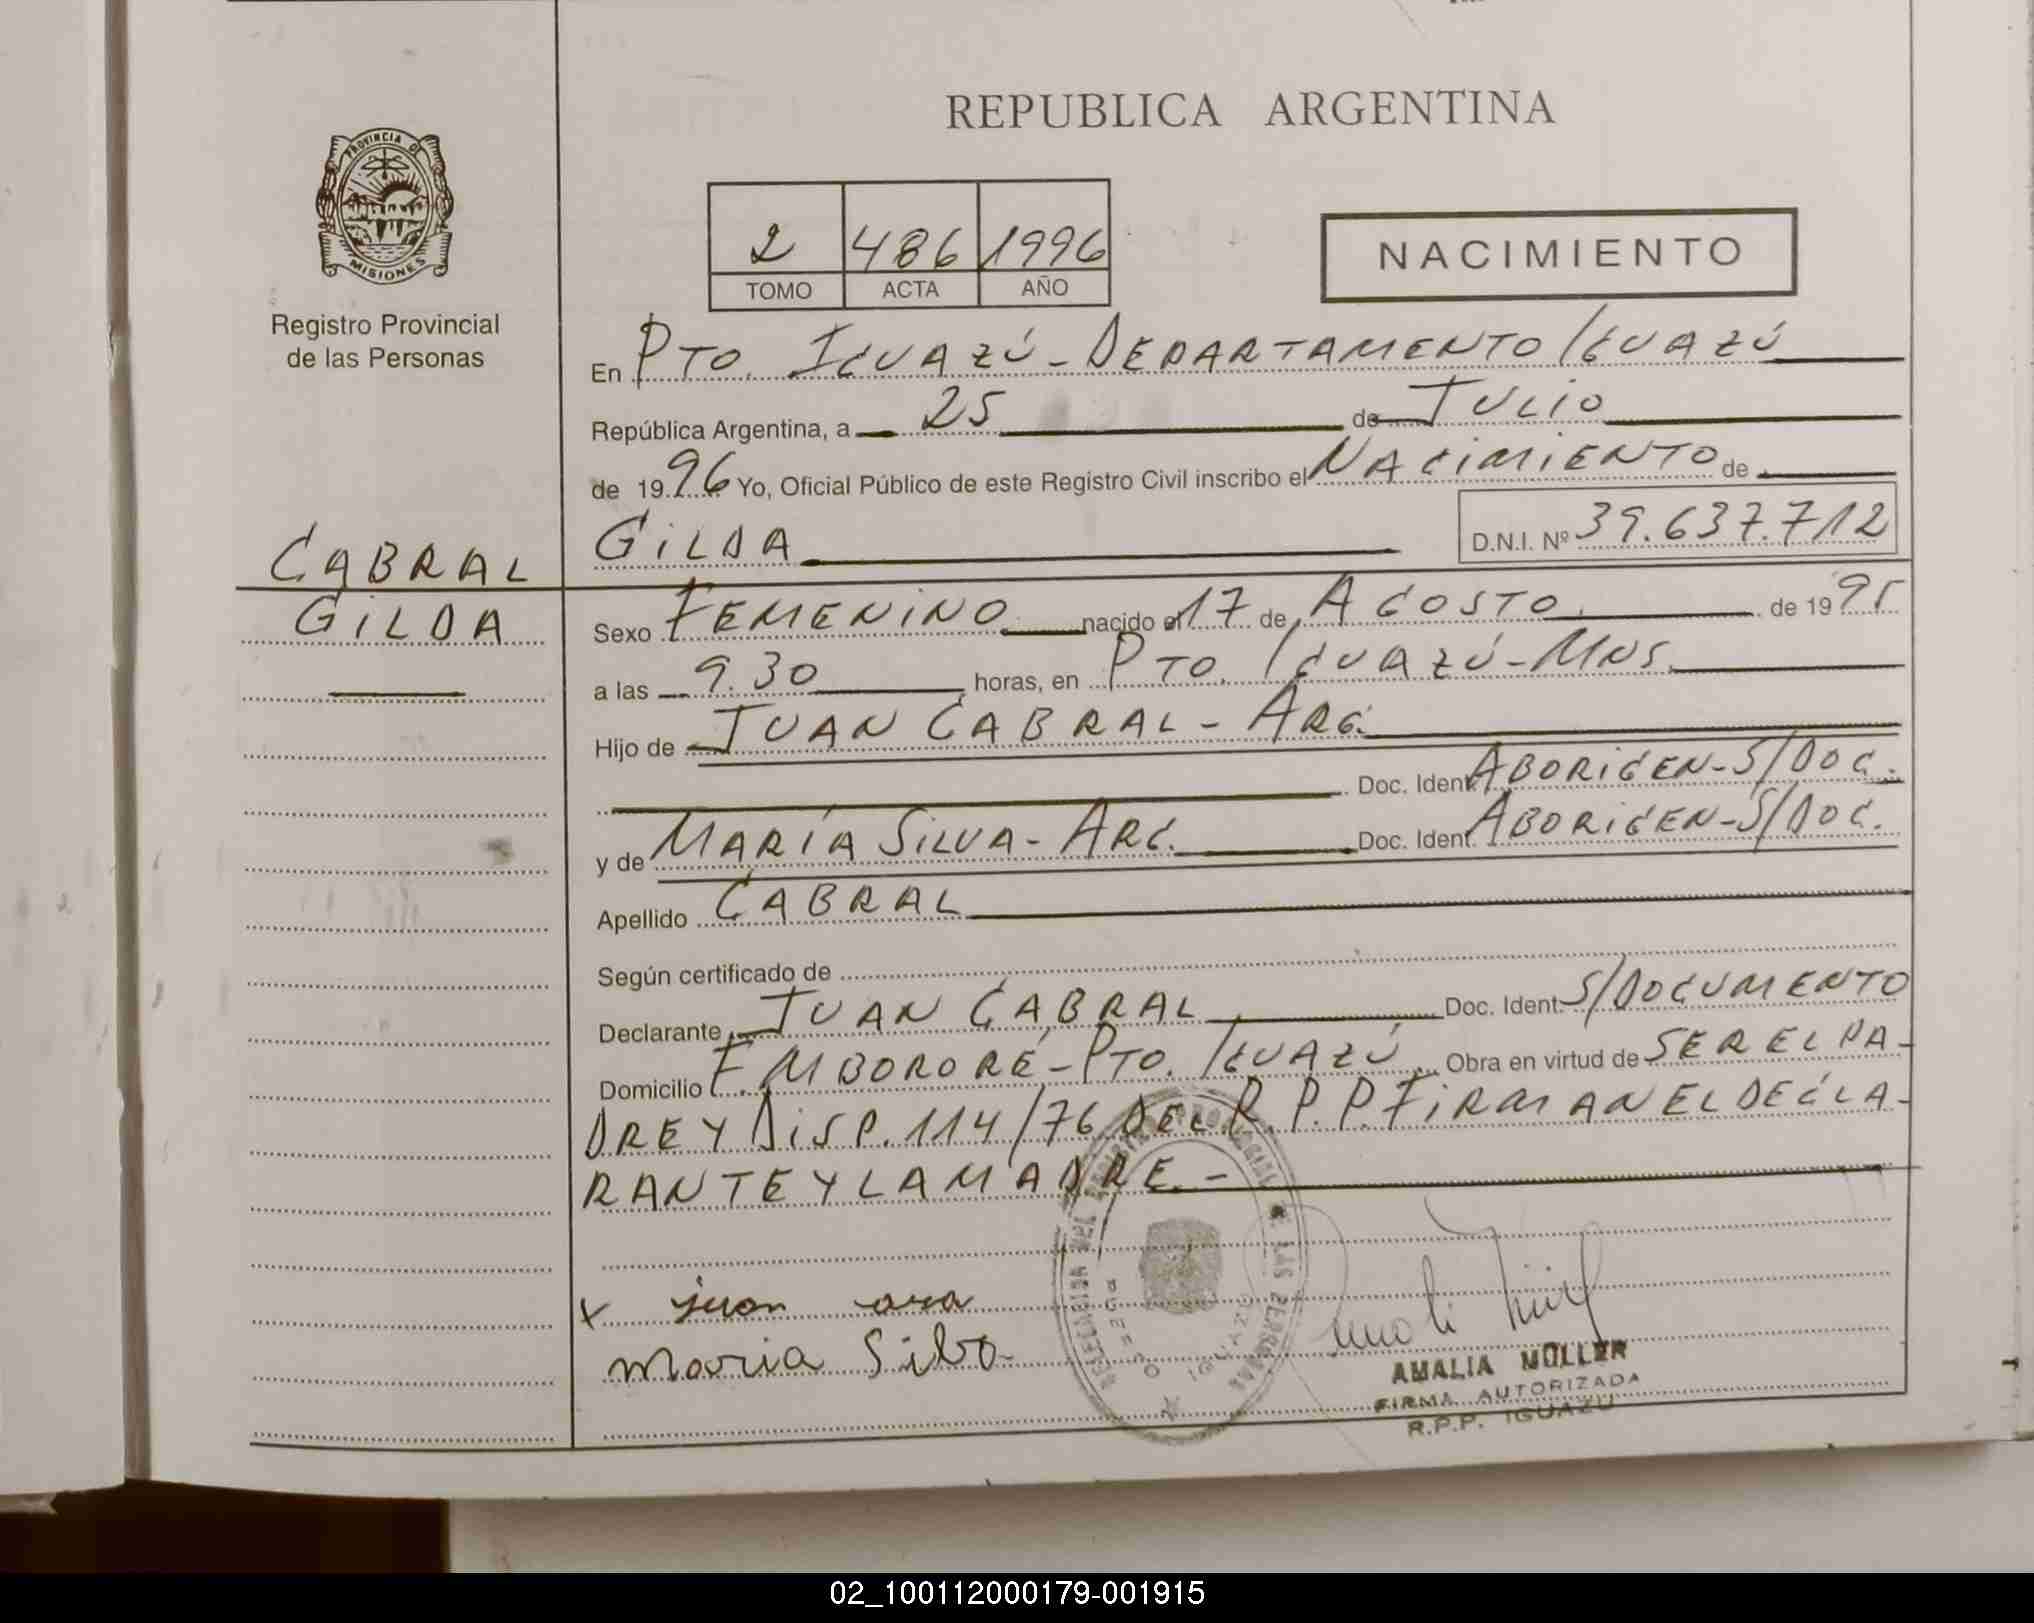 REPUBLICA ARGENTINA
PROVINCIA DE
MISIONES
Registro Provincial
de las Personas
2 486 1996
TOMO ACTA AÑO
NACIMIENTO
En PTO. IGUAZÚ - DEPARTAMENTO IGUAZÚ
República Argentina, a 25 de JULIO
de 1996 Yo, Oficial Público de este Registro Civil inscribo el NACIMIENTO de
GILDA D.N.I. Nº 39.637.712
CABRAL
GILDA
Sexo FEMENINO nacido el 17 de AGOSTO de 1995
a las 9.30 horas, en PTO. IGUAZÚ - MNS.
Hijo de JUAN CABRAL - ARG.
Doc. Ident. ABORIGEN - S/DOC.
y de MARÍA SILVA - ARG. Doc. Ident. ABORIGEN - S/DOC.
Apellido CABRAL
Según certificado de
Declarante JUAN CABRAL Doc. Ident. S/DOCUMENTO
Domicilio F. MBORORÉ - PTO. IGUAZÚ Obra en virtud de SER EL PA-
DRE Y DISP. 114/76 DEL R.P.P. FIRMAN EL DECLA-
RANTE Y LA MADRE. -
x juan
maria Silva
DE LAS PERSONAS
PUERTO IGUAZU
AMALIA MÜLLER
FIRMA AUTORIZADA
R.P.P. IGUAZU
02_100112000179-001915